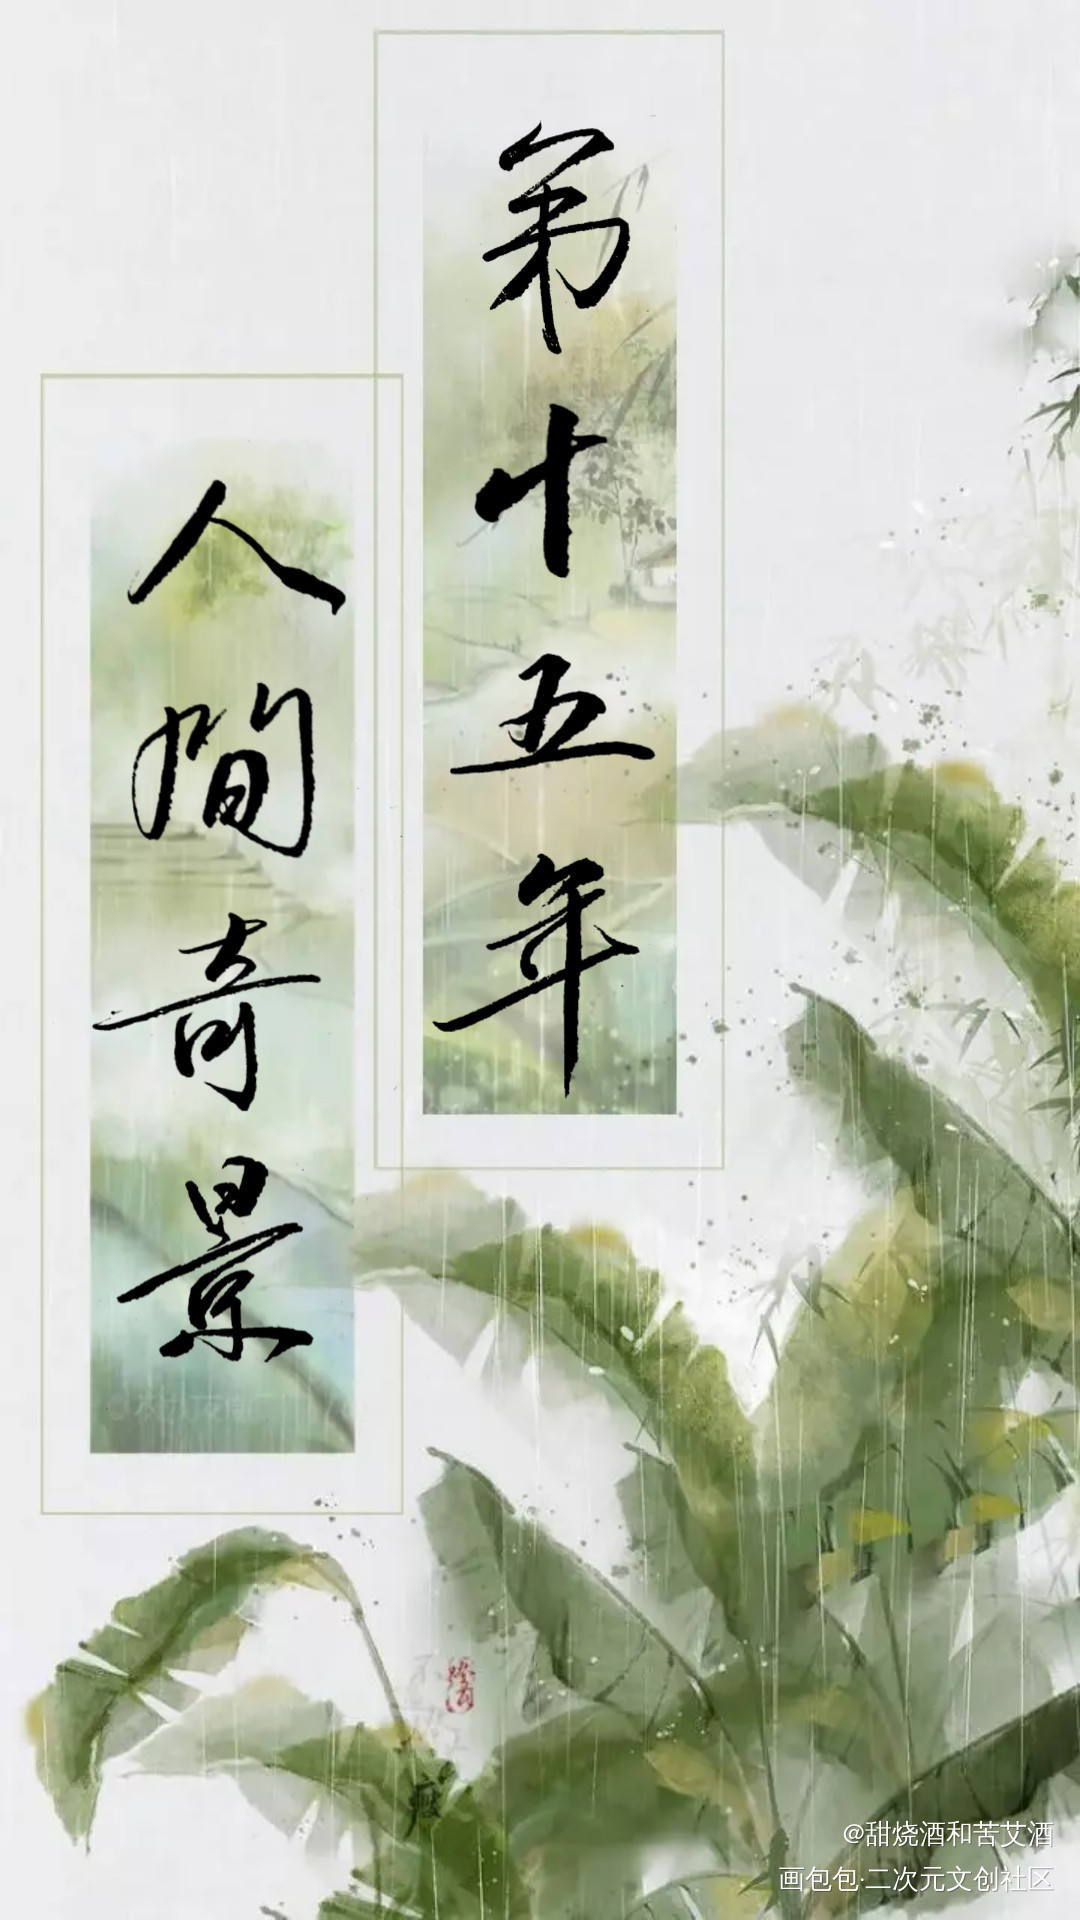 第十五年
人间奇景
@甜烧酒和苦艾酒
画包包·二次元文创社区